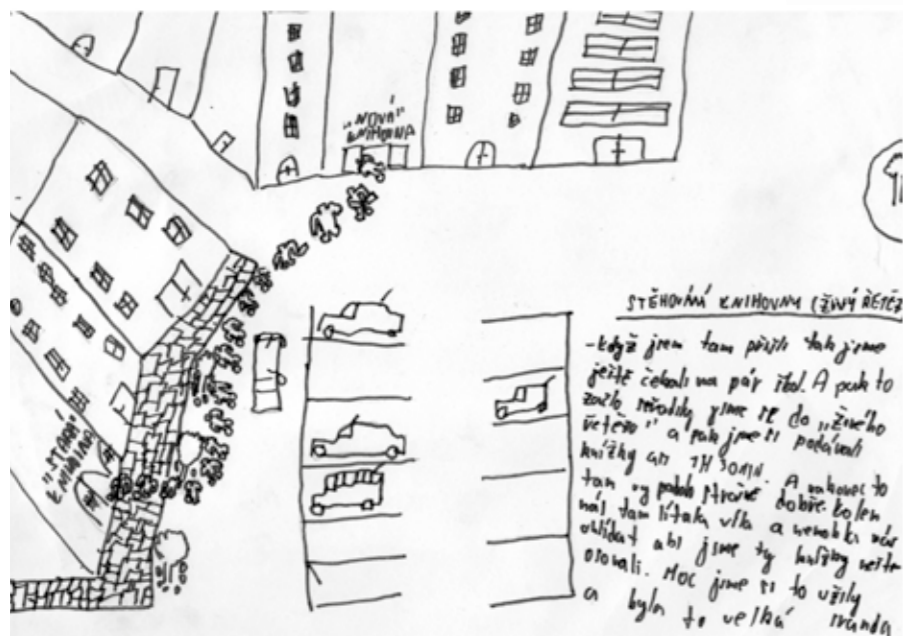 „NOVÁ"
KNIHOVNA
„STARÁ"
KNIHOVNA
STĚHOVÁNÍ KNIHOVNY (ŽIVÝ ŘETĚZ
-když jsem tam přišli tak jsme
ještě čekali na pár škol. A pak to
začlo jsme se do „živého
řetězu" a pak jsme si podávali
knížky asi 1H 30MIN
A nakonec to
tam strašně dobře. Kolem
nás tam lítala a
ohlídat abi jsme ty knížky
. Moc jsme si to užily
a byla to velká sranda